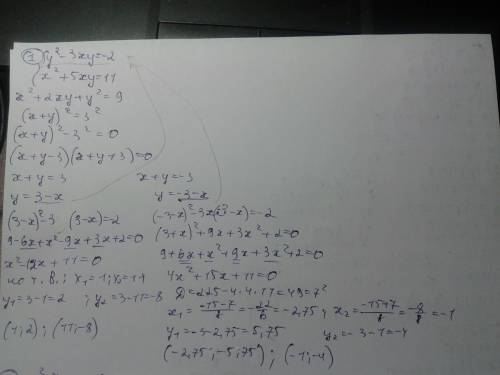 ① { y² - 3xy = -2
{ x² + 5xy = 11
x² + 2xy + y² = 9
(x+y)² = 3²
(x+y)² - 3² = 0
(x+y-3)(x+y+3) = 0
x + y = 3
y = 3-x
(3-x)² - 3 (3-x) = 2
9 - 6x + x² - 9x + 3x + 2 = 0
x² - 12x + 11 = 0
по т. В.: x₁ = 1; x₂ = 11
y₁ = 3-1 = 2 ; y₂ = 3-11 = -8
(1; 2) ; (11; -8)
x + y = -3
y = -3-x
(-3-x)² - 3x(-3-x) = -2
(3+x)² + 9x + 3x² + 2 = 0
9 + 6x + x² + 9x + 3x² + 2 = 0
4x² + 15x + 11 = 0
D = 225 - 4·4·11 = 49 = 7²
x₁ = -15-7/8 = -22/8 = -2,75 ; x₂ = -15+7/8 = -8/8 = -1
y₁ = -3-2,75 = 5,75 y₂ = -3-1 = -4
(-2,75; -5,75) ; (-1; -4)